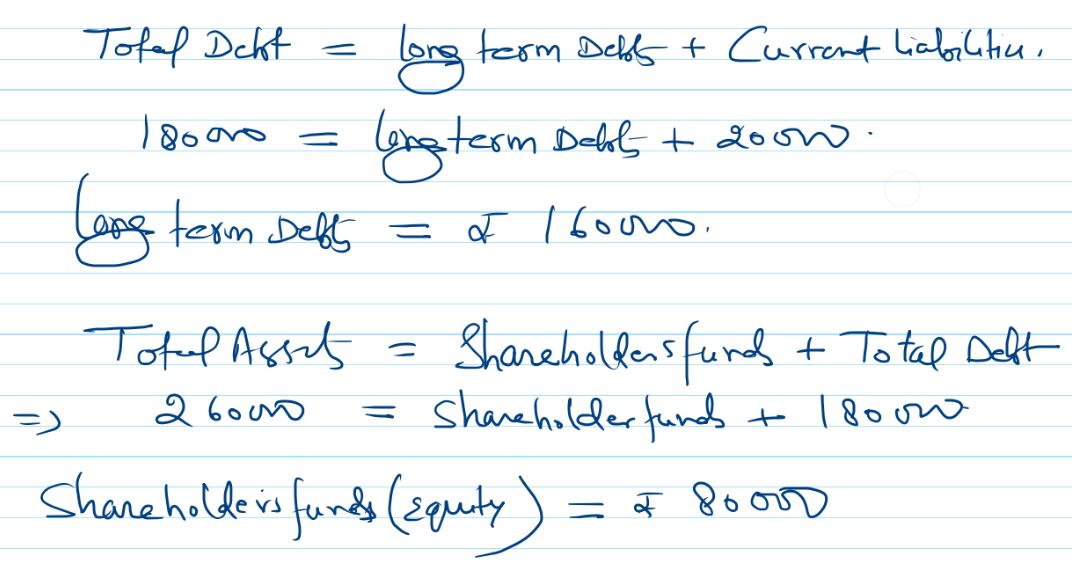 Total Debt = Long term Debts + Current Liabilities.
180000 = Long term Debts + 20000.
Long term Debts = ₹ 160000.
Total Assets = Shareholders funds + Total Debt
=> 260000 = Shareholder funds + 180000
Shareholder's funds (Equity) = ₹ 80000